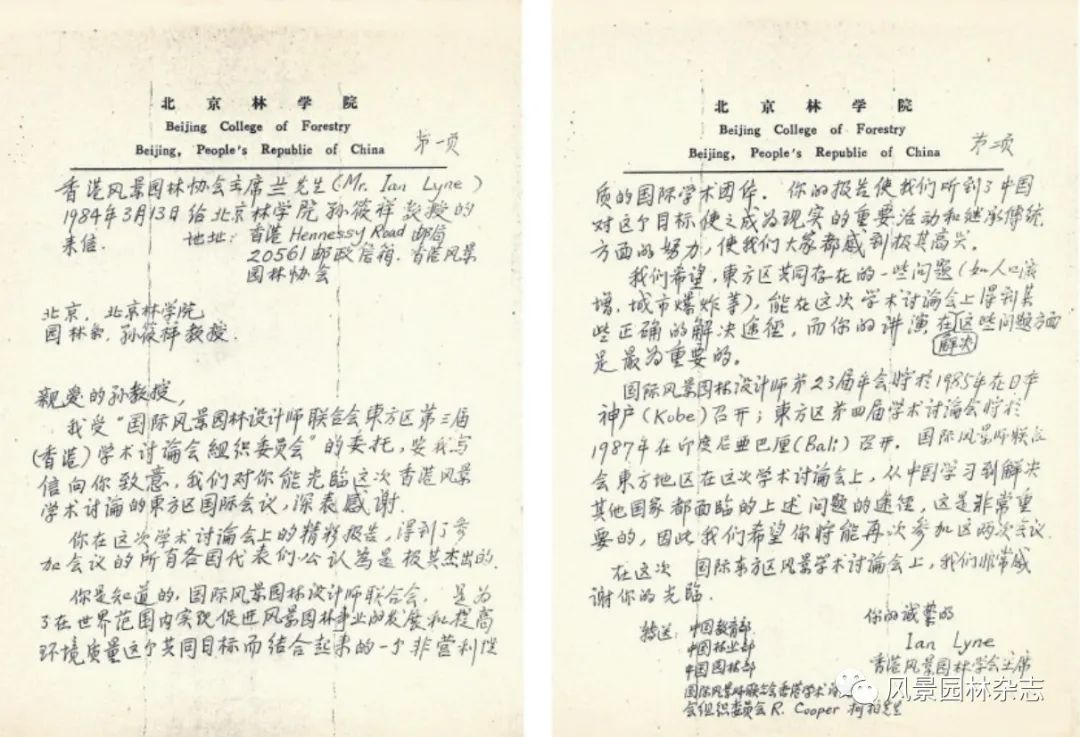 北京林学院
Beijing College of Forestry
Beijing, People's Republic of China
第一页
香港风景园林协会主席兰先生(Mr. Ian Lyne)
1984年3月13日给北京林学院孙筱祥教授的
来信.
地址: 香港 Hennessy Road 邮局
20561邮政信箱.香港风景
园林协会
北京,北京林学院
园林系,孙筱祥教授.
親爱的孙教授,
我受"国际风景园林设计师联合会東方区第三届
(香港)学术讨论会組织委員会"的委托,要我写
信向你致意,我们对你能光臨这次香港风景
学术讨论的東方区国际会议,深表感谢.
你在这次学术讨论会上的精彩报告,得到了参
加会议的所有各国代表们公认為是极其杰出的.
你是知道的,国际风景园林设计师联合会,是为
了在世界范围内实现促进风景园林事业的发展和提高
环境质量这个共同目标而结合起来的一个非营利性
北京林学院
Beijing College of Forestry
Beijing, People's Republic of China
第二页
质的国际学术团体. 你的报告使我们听到了中国
对这个目标使之成为现实的重要活动和继承傳統
方面的努力,使我们大家都感到极其高兴.
我们希望,東方区共同存在的一些问题(如人口激
增,城市爆炸等),能在这次学术讨论会上得到某
些正确的解决途径,而你的讲演在这些问题方面
解决
是最为重要的.
国际风景园林设计师第23届年会将於1985年在日本
神户(Kobe)召开;東方区第四届学术讨论会将於
1987年在印度尼亜巴厘(Bali)召开. 国际风景师联合
会東方地区在这次学术讨论会上,从中国学习到解决
其他国家都面臨的上述问题的途径,这是非常重
要的,因此我们希望你将能再次参加这两次会议.
在这次 国际东方区风景学术讨论会上,我们非常感
谢你的光臨.
你的诚挚的
Ian Lyne
香港风景园林学会主席
转送: 中国教育部.
中国林业部
中国园林部
国际风景师联合会香港学术
会组织委员 R. Cooper 柯柏先生
风景园林杂志